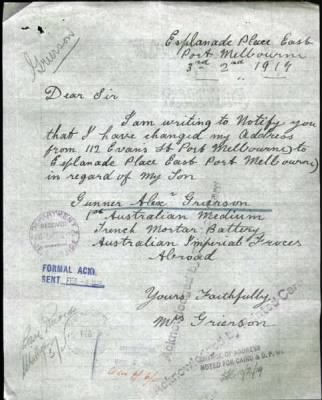 Grierson
Esplanade Place East
Port Melbourne
3rd 2nd 1917
Dear Sir
I am writing to Notify you
that I have changed my Address
from 112 Evans St Port Melbourne to
Esplanade Place East Port Melbourne
in regard of My Son
Gunner Alexr Grierson
1st Australian Medium
Trench Mortar Battery
Australian Imperial Froces
Abroad
FORMAL ACK.
SENT FEB
Yours Faithfully
Mrs Grierson
Acknowledged by Printed Card
CHANGE OF ADDRESS
NOTED FOR CAIRO &